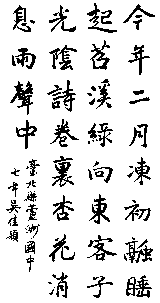 今年二月凍初融睡
起苕溪綠向東客子
光陰詩卷裏杏花消
息雨聲中
臺北縣蘆洲國中
七年吳佳穎